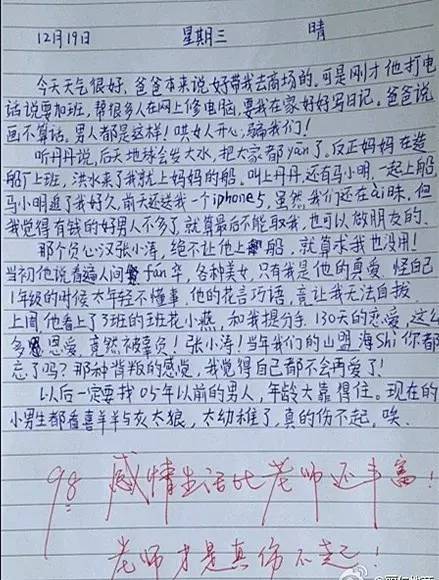 12月19日 星期三 晴
今天天气很好、爸爸本来说好带我去商场的。可是刚才他打电
话说要加班，帮很多人在网上修电脑，要我在家好好写日记。爸爸说
画不算话。男人都是这样！哄女人开心，骗我们！
听丹丹说，后天地球会发大水，把大家都yān了。反正妈妈在造
船厂上班，洪水来了我就上妈妈的船。叫上丹丹还有马小明，一起上船，
马小明追了我好久，前天还送我一个iphone5，虽然我们还在ài昧，但
我觉得有钱的好男人不多了，就算最后不能取我，也可以做朋友的。
那个负心汉张小涛，绝不让他上船，就算求我也没用！
当初他说看遍人间fán华，各种美女，只有我是他的真爱，怪自己
1年级的时候太年轻不懂事，他的花言巧语，竟让我无法自拔。
上周他看上了3班的班花小燕，和我提分手，130天的恋爱，这么
多恩爱，竟然被辜负！张小涛！当年我们的山盟海Shì你都
忘了吗？那种背叛的感觉，我觉得自己都不会再爱了！
以后一定要找05年以前的男人，年龄大靠得住。现在的
小男生都看喜羊羊与灰太狼，太幼稚了，真的伤不起，唉。
98 感情生活比老师还丰富！
老师才是真伤不起！